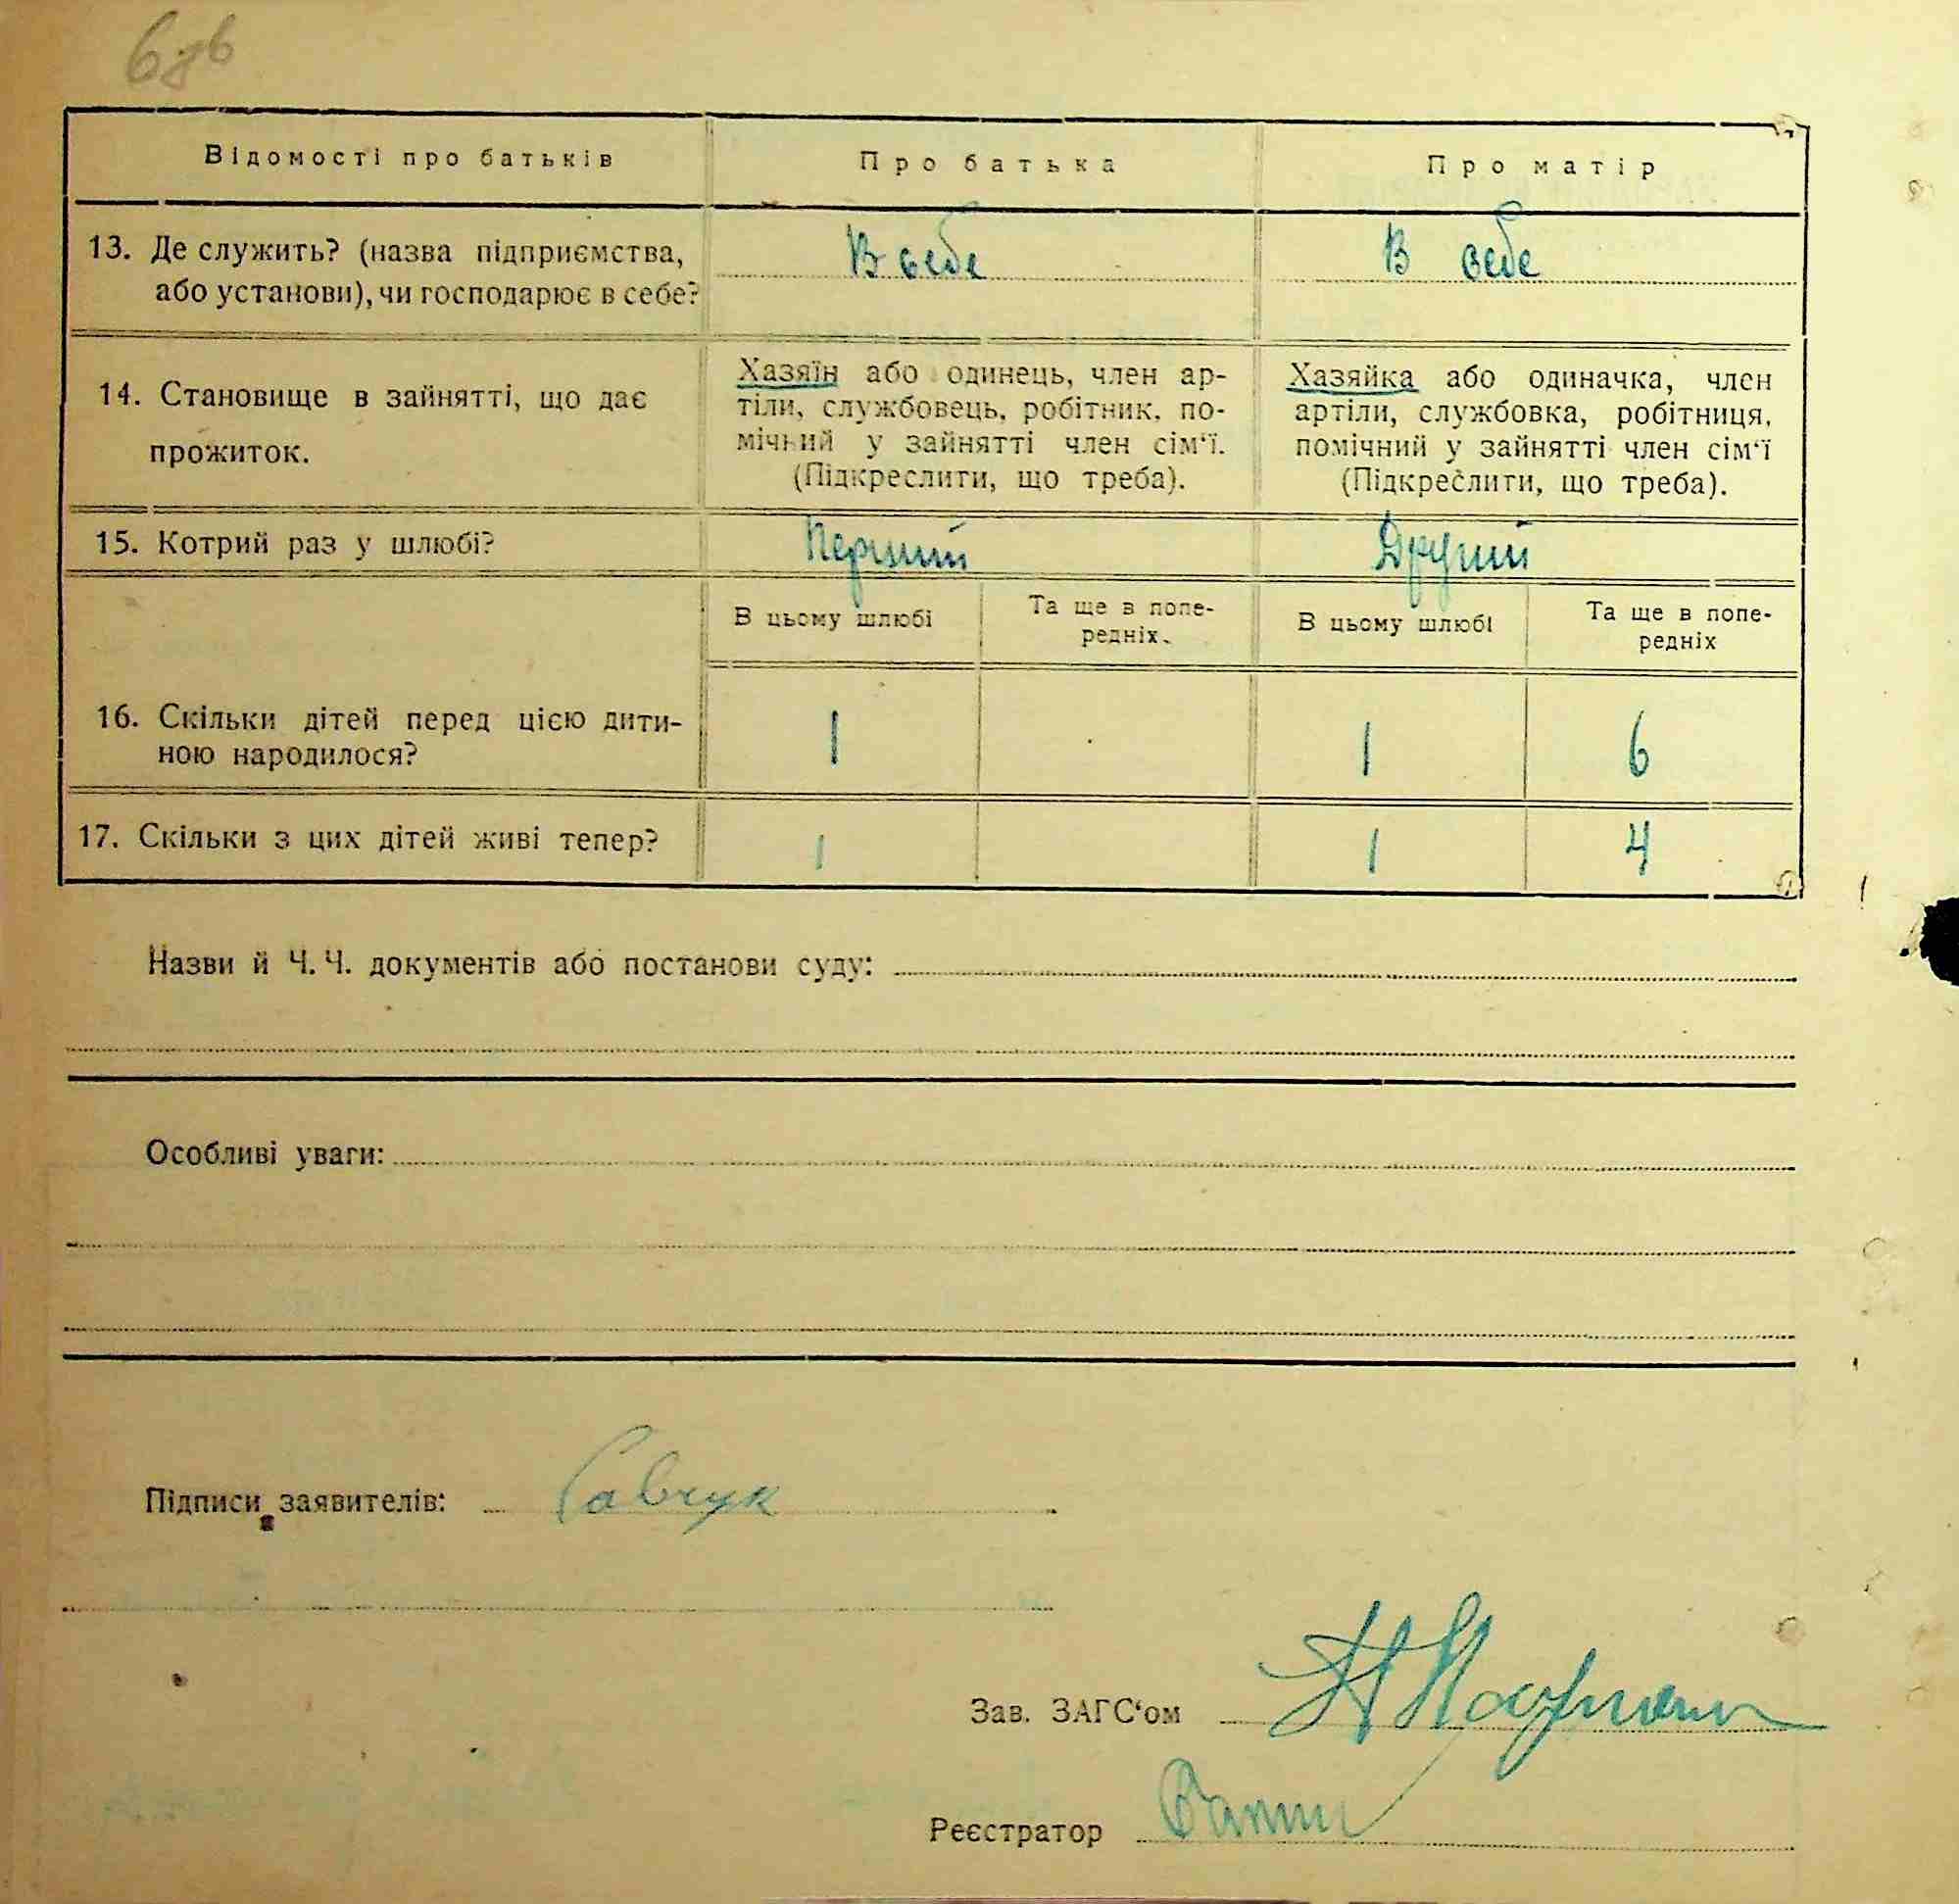 Відомості про батьків
Про батька
Про матір
13. Де служить? (назва підприємства,
або установи), чи господарює в себе?
В себе
В себе
14. Становище в зайнятті, що дає
прожиток.
Хазяїн або одинець, член ар-
тіли, службовець, робітник, по-
мічний у зайнятті член сім‘ї.
(Підкреслити, що треба).
Хазяйка або одиначка, член
артіли, службовка, робітниця,
помічний у зайнятті член сім‘ї
(Підкреслити, що треба).
15. Котрий раз у шлюбі?
Перший
Другий
В цьому шлюбі
Та ще в попе-
редніх.
В цьому шлюбі
Та ще в попе-
редніх
16. Скільки дітей перед цією дити-
ною народилося?
1
1
6
17. Скільки з цих дітей живі тепер?
1
1
4
Назви й Ч. Ч. документів або постанови суду:
Особливі уваги:
Підписи заявителів:
Савчук
Зав. ЗАГС‘ом
Реєстратор